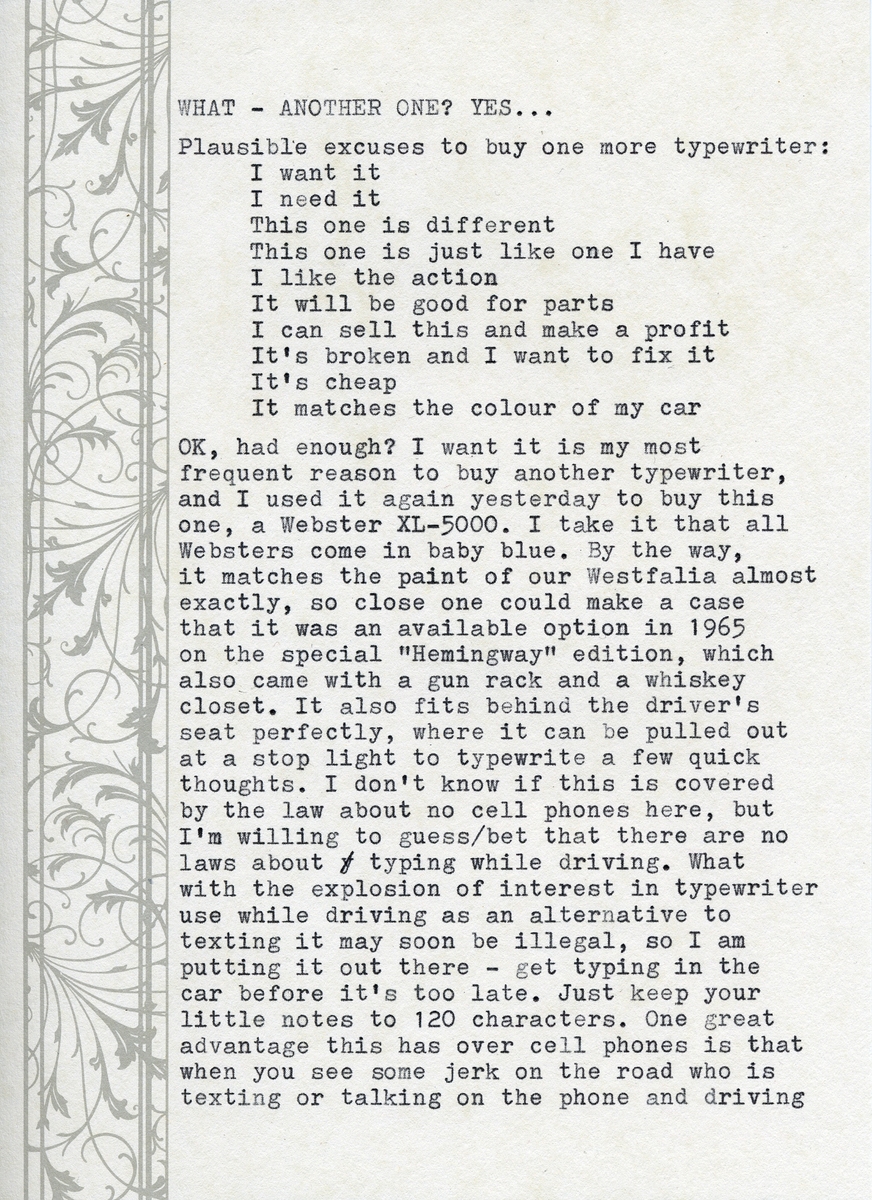 WHAT - ANOTHER ONE? YES...
Plausible excuses to buy one more typewriter:
I want it
I need it
This one is different
This one is just like one I have
I like the action
It will be good for parts
I can sell this and make a profit
It's broken and I want to fix it
It's cheap
It matches the colour of my car
OK, had enough? I want it is my most
frequent reason to buy another typewriter,
and I used it again yesterday to buy this
one, a Webster XL-5000. I take it that all
Websters come in baby blue. By the way,
it matches the paint of our Westfalia almost
exactly, so close one could make a case
that it was an available option in 1965
on the special "Hemingway" edition, which
also came with a gun rack and a whiskey
closet. It also fits behind the driver's
seat perfectly, where it can be pulled out
at a stop light to typewrite a few quick
thoughts. I don't know if this is covered
by the law about no cell phones here, but
I'm willing to guess/bet that there are no
laws about typing while driving. What
with the explosion of interest in typewriter
use while driving as an alternative to
texting it may soon be illegal, so I am
putting it out there - get typing in the
car before it's too late. Just keep your
little notes to 120 characters. One great
advantage this has over cell phones is that
when you see some jerk on the road who is
texting or talking on the phone and driving